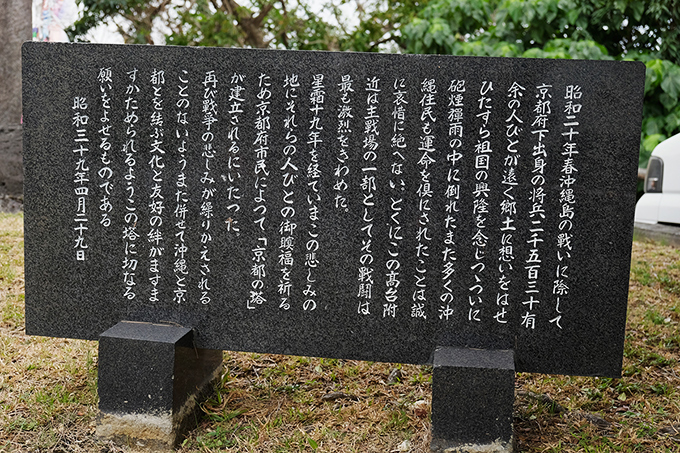 昭和二十年春沖縄島の戦いに際して
京都府下出身の将兵二千五百三十有
余の人びとが遠く郷土に想いをはせ
ひたすら祖国の興隆を念じつつついに
砲煙彈雨の中に倒れたまた多くの沖
縄住民も運命を倶にされたことは誠
に哀惜に絶へないとくにこの高台附
近は主戦場の一部としてその戦闘は
最も激烈をきわめた。
星霜十九年を経ていまこの悲しみの
地にそれらの人びとの御冥福を祈る
ため京都府市民によつて「京都の塔」
が建立されるにいたつた
再び戦争の悲しみが繰りかえされる
ことのないようまた併せて沖縄と京
都とを結ぶ文化と友好の絆がますま
すかためられるようこの塔に切なる
願いをよせるものである
昭和三十九年四月二十九日